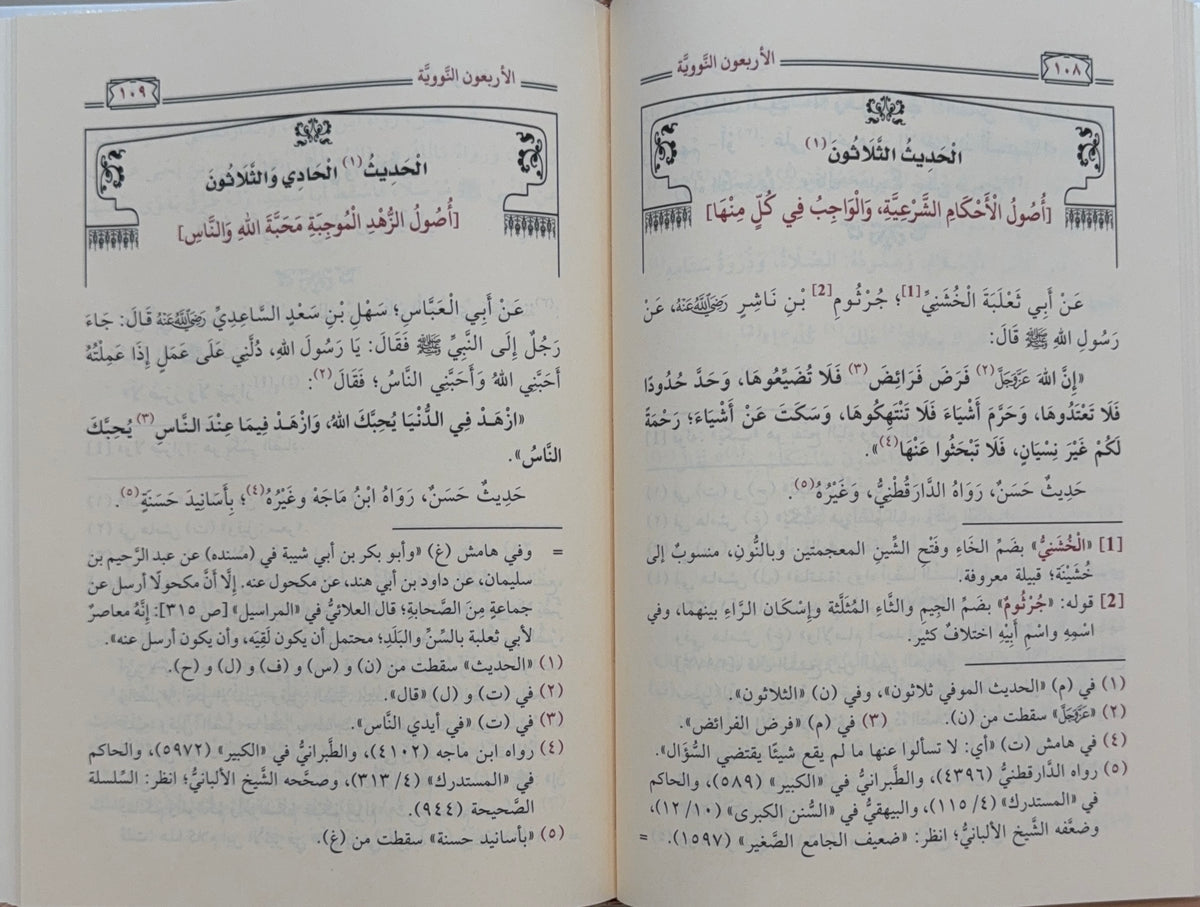 ١٠٨
الأربعون النَّوويَّة
الْحَدِيثُ الثَّلَاثُونَ (١)
[أُصُولُ الْأَحْكَامِ الشَّرْعِيَّةِ، وَالْوَاجِبُ فِي كُلٍّ مِنْهَا]
عَنْ أَبِي ثَعْلَبَةَ الْخُشَنِيِّ[1]؛ جُرْثُومِ[2] بْنِ نَاشِرٍ رَضِيَ اللَّهُ عَنْهُ، عَنْ
رَسُولِ اللهِ ﷺ قَالَ:
«إِنَّ اللهَ عَزَّ وَجَلَّ(٢) فَرَضَ فَرَائِضَ(٣) فَلَا تُضَيِّعُوهَا، وَحَدَّ حُدُودًا
فَلَا تَعْتَدُوهَا، وَحَرَّمَ أَشْيَاءَ فَلَا تَنْتَهِكُوهَا، وَسَكَتَ عَنْ أَشْيَاءَ؛ رَحْمَةً
لَكُمْ غَيْرَ نِسْيَانٍ، فَلَا تَبْحَثُوا عَنْهَا(٤)».
حَدِيثٌ حَسَنٌ، رَوَاهُ الدَّارَقُطْنِيُّ، وَغَيْرُهُ(٥).
[1] «الْخُشَنِيُّ» بضَمِّ الخَاءِ وفَتْحِ الشِّينِ المعجمتين وبالنُّونِ، منسوبٌ إلى
خُشَيْنَة؛ قبيلة معروفة.
[2] قوله: «جُرْثُومٌ» بضَمِّ الجِيمِ والثَّاءِ المُثَلَّثة وإسْكَان الرَّاءِ بينهما، وفي
اسْمِهِ واسْمِ أَبِيْهِ اختلافٌ كثير.
(١) في (م) «الحديث الموفي ثلاثون»، وفي (ن) «الثلاثون».
(٢) «عَزَّ وَجَلَّ» سقطت من (ن). (٣) في (م) «فرض الفرائض».
(٤) في هامش (ت) «أي: لا تسألوا عنها ما لم يقع شيئًا يقتضي السُّؤَال».
(٥) رواه الدَّارقطنيُّ (٤٣٩٦)، والطَّبرانيُّ في «الكبير» (٥٨٩)، والحاكم
في «المستدرك» (٤/ ١١٥)، والبيهقيُّ في «السُّنن الكبرى» (١٠/ ١٢)،
وضعَّفه الشَّيخ الألبانيُّ؛ انظر: «ضعيف الجامع الصَّغير» (١٥٩٧). =
الأربعون النَّوويَّة
١٠٩
الْحَدِيثُ (١) الْحَادِي وَالثَّلَاثُونَ
[أُصُولُ الزُّهْدِ الْمُوجِبَةِ مَحَبَّةَ اللهِ وَالنَّاسِ]
عَنْ أَبِي الْعَبَّاسِ؛ سَهْلِ بْنِ سَعْدٍ السَّاعِدِيِّ رَضِيَ اللَّهُ عَنْهُ قَالَ: جَاءَ
رَجُلٌ إِلَى النَّبِيِّ ﷺ فَقَالَ: يَا رَسُولَ اللهِ، دُلَّنِي عَلَى عَمَلٍ إِذَا عَمِلْتُهُ
أَحَبَّنِي اللهُ وَأَحَبَّنِي النَّاسُ؛ فَقَالَ(٢):
«ازْهَدْ فِي الدُّنْيَا يُحِبَّكَ اللهُ، وَازْهَدْ فِيمَا عِنْدَ النَّاسِ(٣) يُحِبَّكَ
النَّاسُ».
حَدِيثٌ حَسَنٌ، رَوَاهُ ابْنُ مَاجَهْ وَغَيْرُهُ(٤)؛ بِأَسَانِيدَ حَسَنَةٍ(٥).
= وفي هامش (غ) «وأبو بكر بن أبي شيبة في (مسنده) عن عبد الرَّحيم بن
سليمان، عن داود بن أبي هند، عن مكحول عنه. إلَّا أنَّ مكحولًا أرسل عن
جماعةٍ مِنَ الصَّحابةِ؛ قال العلائيُّ في «المراسيل» [ص ٣١٥]: إنَّهُ معاصرٌ
لأبي ثعلبة بالسِّنِّ والبَلَدِ؛ محتمل أن يكون لَقِيَه، وأن يكون أرسل عنه».
(١) «الحديث» سقطت من (ن) و (س) و (ف) و (ل) و (ح).
(٢) في (ت) و (ل) «قال».
(٣) في (ت) «في أيدي النَّاس».
(٤) رواه ابن ماجه (٤١٠٢)، والطَّبرانيُّ في «الكبير» (٥٩٧٢)، والحاكم
في «المستدرك» (٤/ ٣١٣)، وصحَّحه الشَّيخ الألبانيُّ؛ انظر: السِّلسلة
الصَّحيحة (٩٤٤).
(٥) «بأسانيد حسنة» سقطت من (غ).